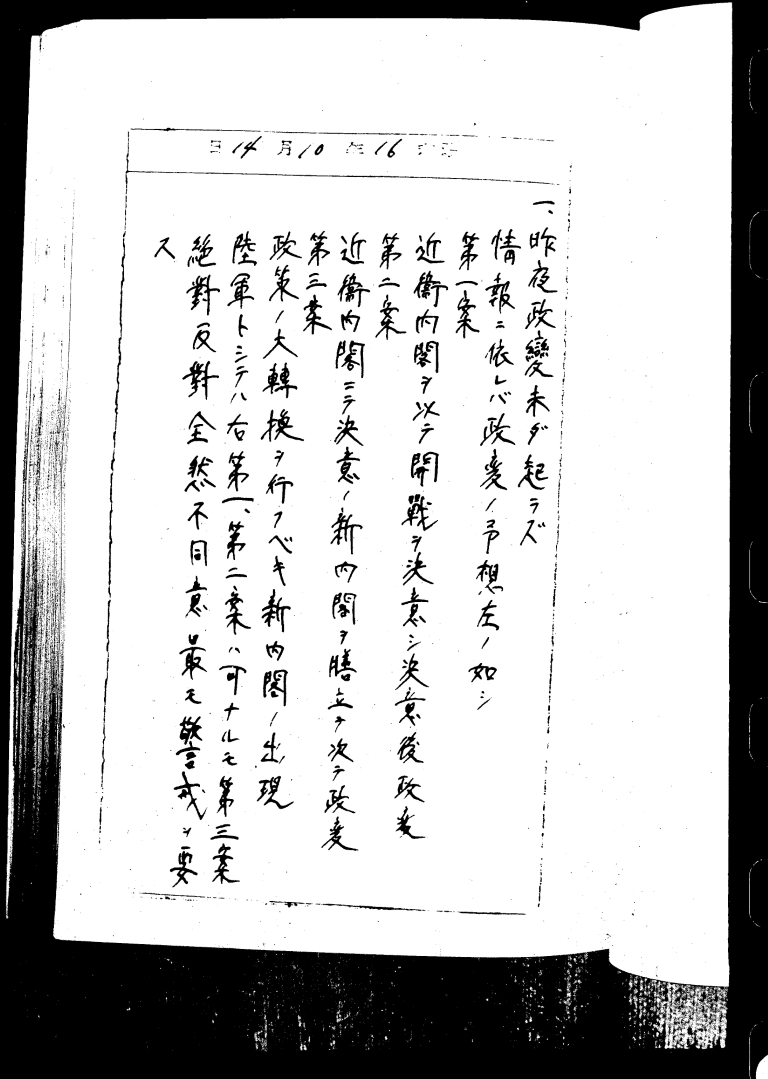 日14月10年16和昭
一、昨夜政變未ダ起ラズ
情報ニ依レバ政変ノ予想左ノ如シ
第一案
近衞内閣ヲ以テ開戰ヲ決意シ決意後政変
第二案
近衞内閣ニテ決意ノ新内閣ヲ膳立テ次テ政変
第三案
政策ノ大轉換ヲ行フベキ新内閣ノ出現
陸軍トシテハ右第一、第二案ハ可ナルモ第三案
絶對反對全然不同意最モ警戒ヲ要
ス